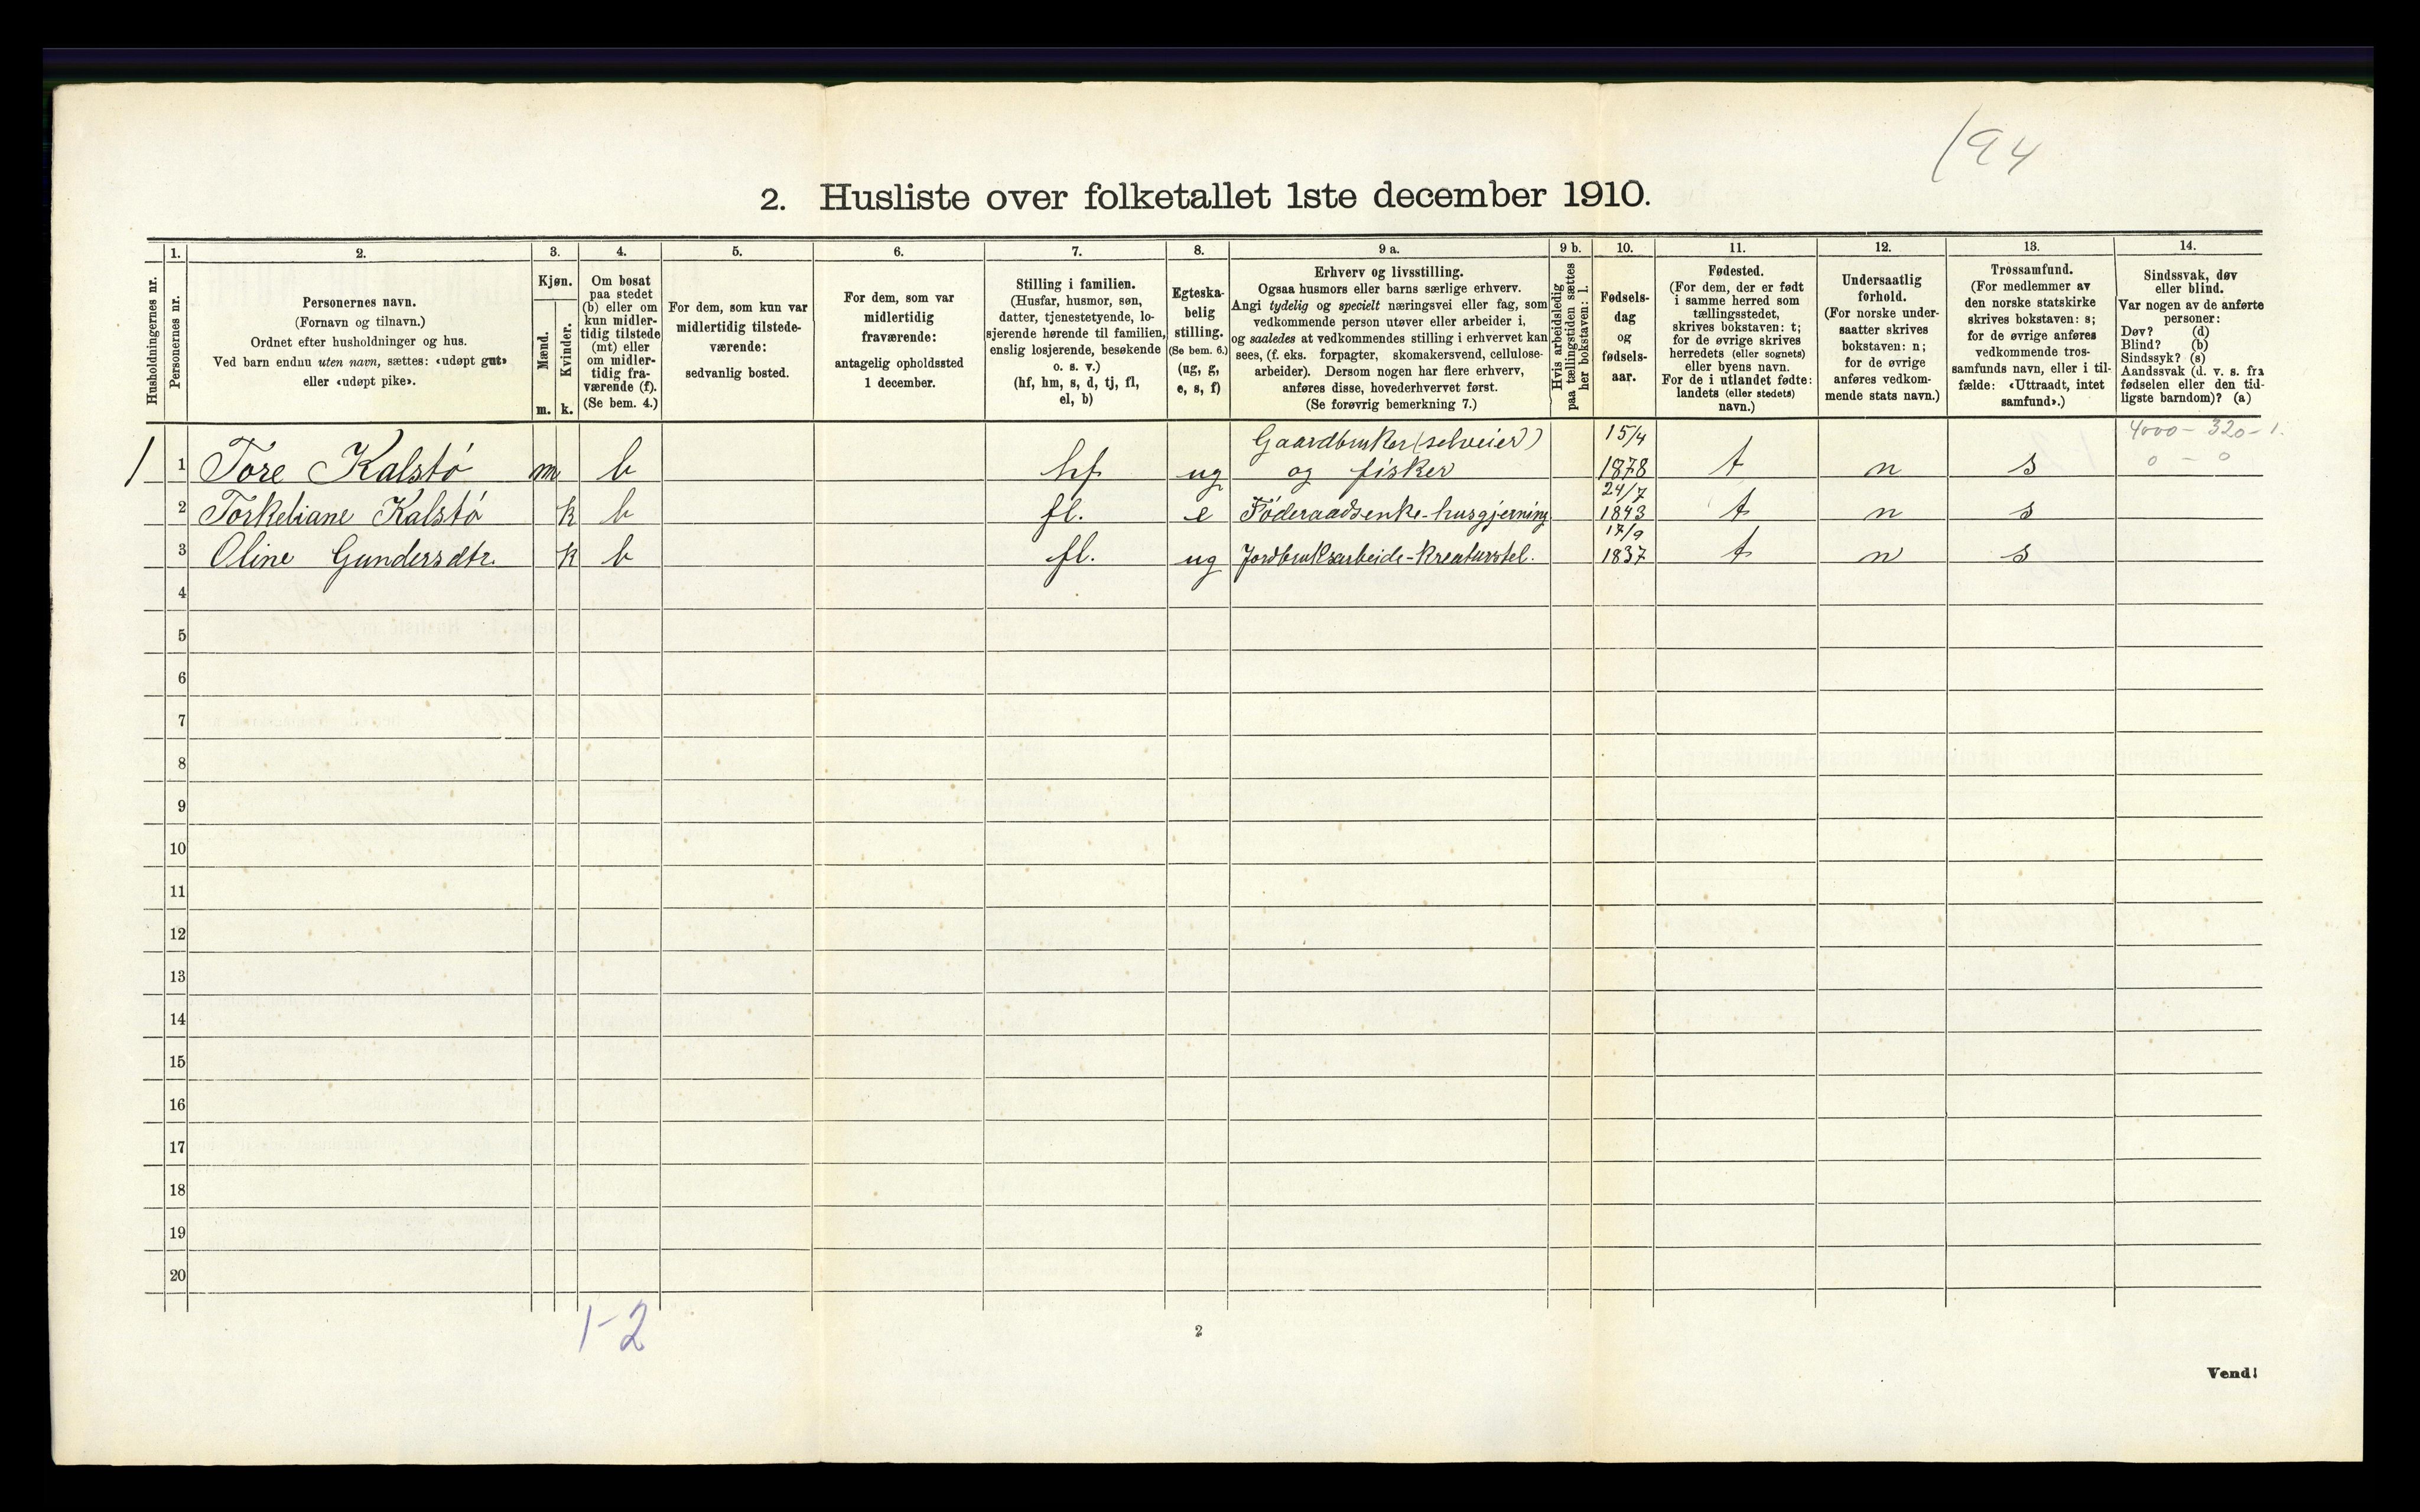 194
2. Husliste over folketallet 1ste december 1910.
Husholdningernes nr.
1.
Personernes nr.
2.
Personernes navn.
(Fornavn og tilnavn.)
Ordnet efter husholdninger og hus.
Ved barn endnu uten navn, sættes: «udøpt gut»
eller «udøpt pike».
3.
Kjøn.
Mænd.
Kvinder.
m. k.
4.
Om bosat
paa stedet
(b) eller om
kun midler-
tidig tilstede
(mt) eller
om midler-
tidig fra-
værende (f).
(Se bem. 4.)
5.
For dem, som kun var
midlertidig tilstede-
værende:
sedvanlig bosted.
6.
For dem, som var
midlertidig
fraværende:
antagelig opholdssted
1 december.
7.
Stilling i familien.
(Husfar, husmor, søn,
datter, tjenestetyende, lo-
sjerende hørende til familien,
enslig losjerende, besøkende
o. s. v.)
(hf, hm, s, d, tj, fl,
el, b)
8.
Egteska-
belig
stilling.
(Se bem. 6.)
(ug, g,
e, s, f)
9 a.
Erhverv og livsstilling.
Ogsaa husmors eller barns særlige erhverv.
Angi tydelig og specielt næringsvei eller fag, som
vedkommende person utøver eller arbeider i,
og saaledes at vedkommendes stilling i erhvervet kan
sees, (f. eks. forpagter, skomakersvend, cellulose-
arbeider). Dersom nogen har flere erhverv,
anføres disse, hovederhvervet først.
(Se forøvrig bemerkning 7.)
9 b.
Hvis arbeidsledig
paa tællingstiden sættes
her bokstaven: l.
10.
Fødsels-
dag
og
fødsels-
aar.
11.
Fødested.
(For dem, der er født
i samme herred som
tællingsstedet,
skrives bokstaven: t;
for de øvrige skrives
herredets (eller sognets)
eller byens navn.
For de i utlandet fødte:
landets (eller stedets)
navn.)
12.
Undersaatlig
forhold.
(For norske under-
saatter skrives
bokstaven: n;
for de øvrige
anføres vedkom-
mende stats navn.)
13.
Trossamfund.
(For medlemmer av
den norske statskirke
skrives bokstaven: s;
for de øvrige anføres
vedkommende tros-
samfunds navn, eller i til-
fælde: «Uttraadt, intet
samfund».)
14.
Sindssvak, døv
eller blind.
Var nogen av de anførte
personer:
Døv? (d)
Blind? (b)
Sindssyk? (s)
Aandssvak (d. v. s. fra
fødselen eller den tid-
ligste barndom)? (a)
Gaardbruker (selveier) 15/4 4000 - 320 - 1.
1 1 Tore Kalstø m b hf ug og fisker 1878 t n s 0 - 0
24/7
2 Torkeliane Kalstø k b fl. e Føderaadsenke - husgjerning 1843 t n s
17/9
3 Oline Gundersdtr. k b fl. ug Jordbruksarbeide - kreaturstel. 1837 t n s
4
5
6
7
8
9
10
11
12
13
14
15
16
17
18
19
20
1-2
2
Vend!